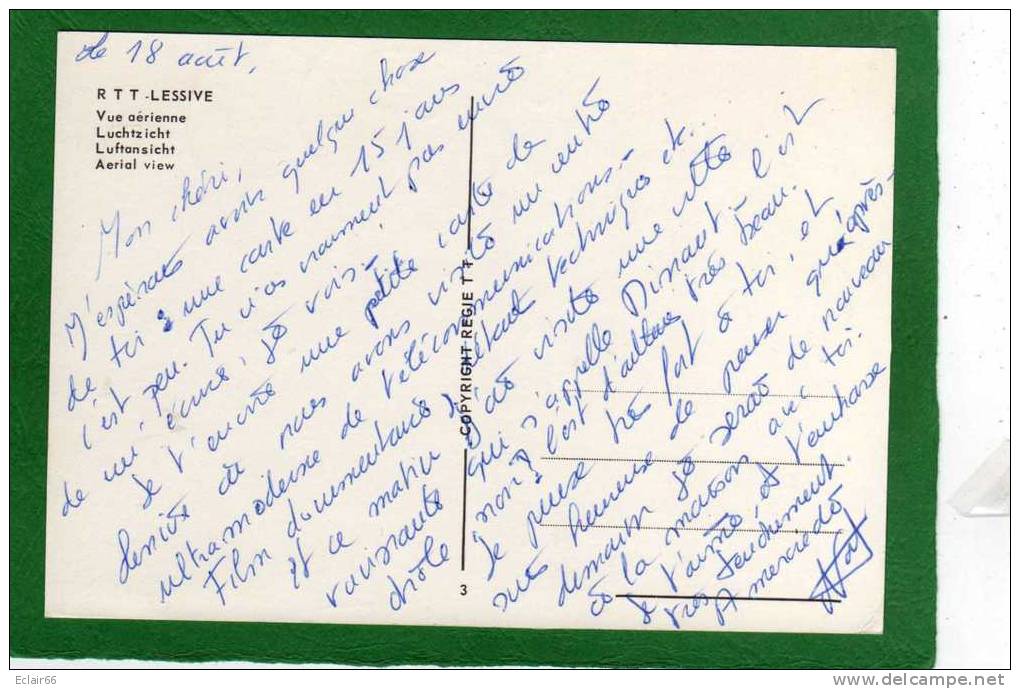 Le 18 août,
R T T - LESSIVE
Vue aérienne
Luchtzicht
Luftansicht
Aerial view
Mon chéri,
J'espérais avoir quelque chose
de toi : une carte en 15 jours
c'est peu. Tu n'as vraiment pas envie
de m'écrire, je vois.
Je t'envoie une petite carte de
Lessive où nous avons visité un centre
ultramoderne de télécommunications.
Film documentaire débutant technique etc...
Et ce matin j'ai visité une ville
ravissante qui s'appelle Dinant. C'est
drôle non? C'est d'ailleurs très beau.
Je pense très fort à toi, et
suis heureuse de penser qu'après-
demain je serai de nouveau
à la maison avec toi.
Je t'aime et t'embrasse
très tendrement.
A mercredi
COPYRIGHT REGIE T T
3
Eclair66
http://www.delcampe.net